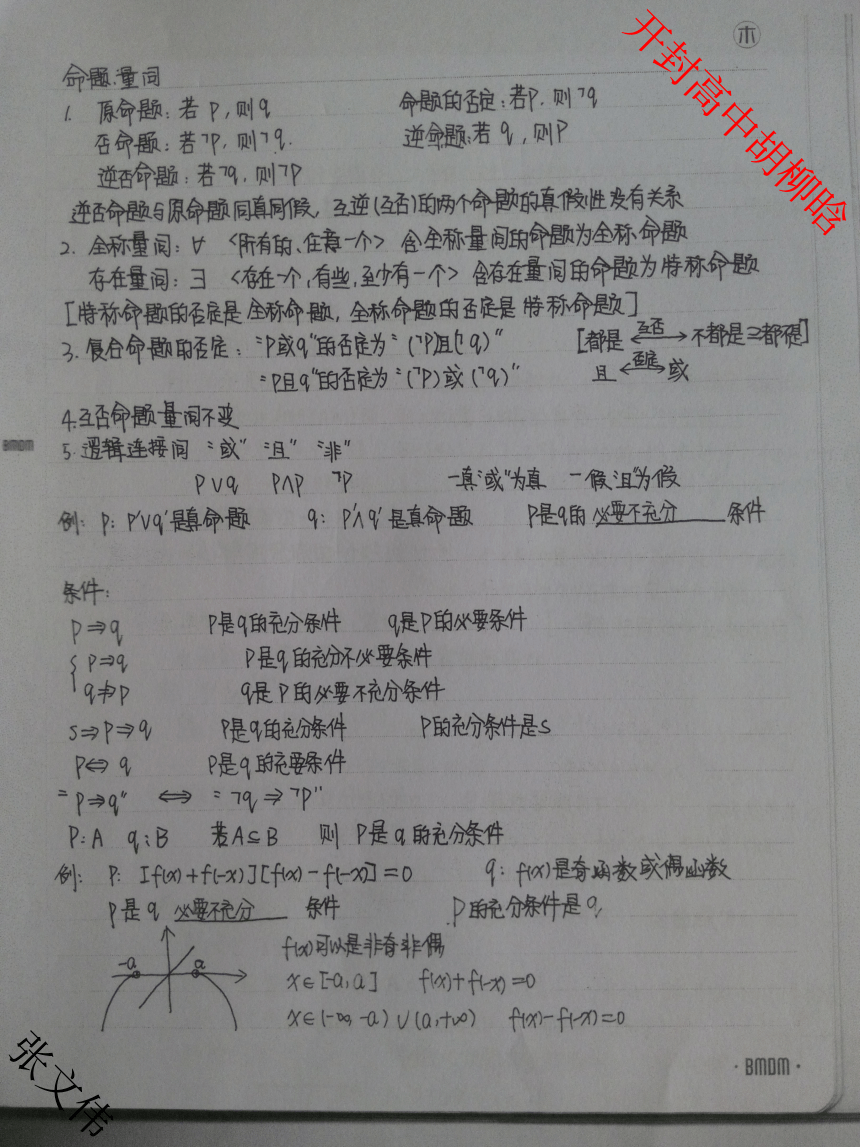 木
开封高中胡柳晗
命题.量词
1. 原命题:若P,则q 命题的否定:若P.则¬q
否命题:若¬P,则¬q. 逆命题:若q,则P
逆否命题:若¬q,则¬P
逆否命题与原命题同真同假,互逆(互否)的两个命题的真假性没有关系
2. 全称量词:∀ <所有的、任意一个> 含全称量词的命题为全称命题
存在量词:∃ <存在一个,有些,至少有一个> 含存在量词的命题为特称命题
[特称命题的否定是全称命题,全称命题的否定是特称命题]
3. 复合命题的否定:"P或q"的否定为"(¬P)且(¬q)" [都是 ←互否→ 不都是≥都不是]
"P且q"的否定为"(¬P)或(¬q)" 且 ←否定→ 或
4.互否命题量词不变
BMDM
5.逻辑连接词 "或" "且" "非"
P∨q P∧P ¬P 一真"或"为真 一假"且"为假
例: P: P'∨q'是真命题 q: P'∧q'是真命题 P是q的 必要不充分 条件
条件:
P⇒q P是q的充分条件 q是P的必要条件
{ P⇒q P是q的充分不必要条件
q⇏P q是P的必要不充分条件
S⇒P⇒q P是q的充分条件 P的充分条件是S
P⇔q P是q的充要条件
"P⇒q" ⇔ "¬q⇒¬P"
P:A q:B 若A⊆B 则 P是q的充分条件
例: P: [f(x)+f(-x)][f(x)-f(-x)]=0 q: f(x)是奇函数或偶函数
P是q 必要不充分 条件 P的充分条件是q
f(x)可以是非奇非偶
-a a
x∈[-a,a] f(x)+f(-x)=0
x∈(-∞,-a)∪(a,+∞) f(x)-f(-x)=0
·BMDM·
张文伟